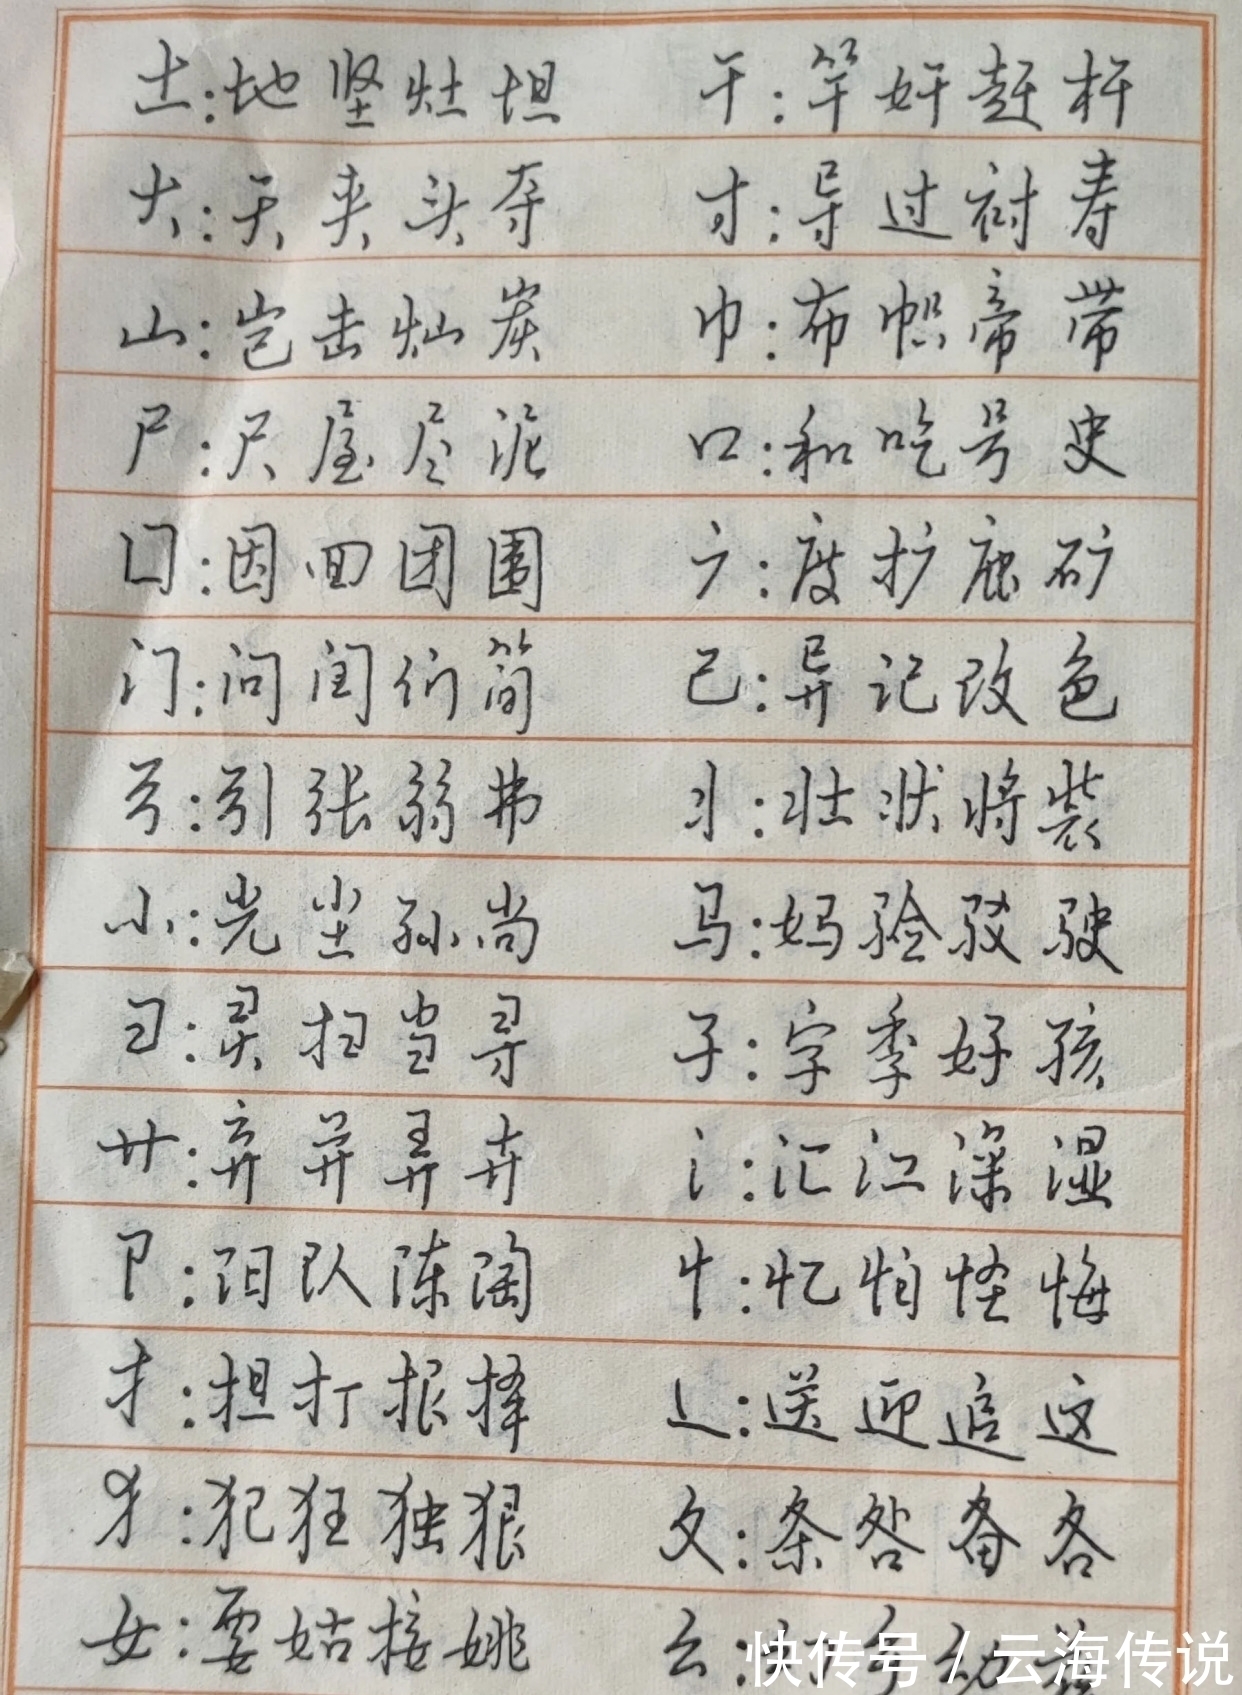 土:地坚灶坦 干:竿奸赶杆
大:天夹头夺 寸:导过衬寿
山:岂击灿炭 巾:布帜帝带
尸:尺屋尽泥 口:和吃号史
囗:因回团围 广:度扩庶矿
门:问闰们简 己:异记改色
弓:引张弱弗 丬:壮状将装
小:光尘孙尚 马:妈验驳驶
彐:灵扫当寻 子:字季好孩
廾:弃异弄卉 氵:汇江深湿
阝:阳队陈陶 忄:忆怕怪悔
扌:担打报择 辶:送迎追这
犭:犯狂独狠 夂:条咎备各
女:要姑接姚 云:
快传号/云海传说